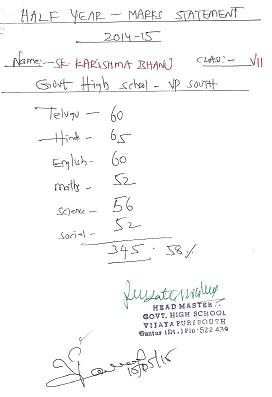 HALF YEAR - MARKS STATEMENT
2014-15
Name:- SK KARISHMA BHANU CLASS:- VII
Govt High school - VP SOUTH
Telugu - 60
Hindi - 65
English - 60
maths - 52
science - 56
social - 52
345 - 58%
HEAD MASTER
GOVT. HIGH SCHOOL
VIJAYAPURI SOUTH
Guntur (Dt.) Pin-522 439
15/05/15